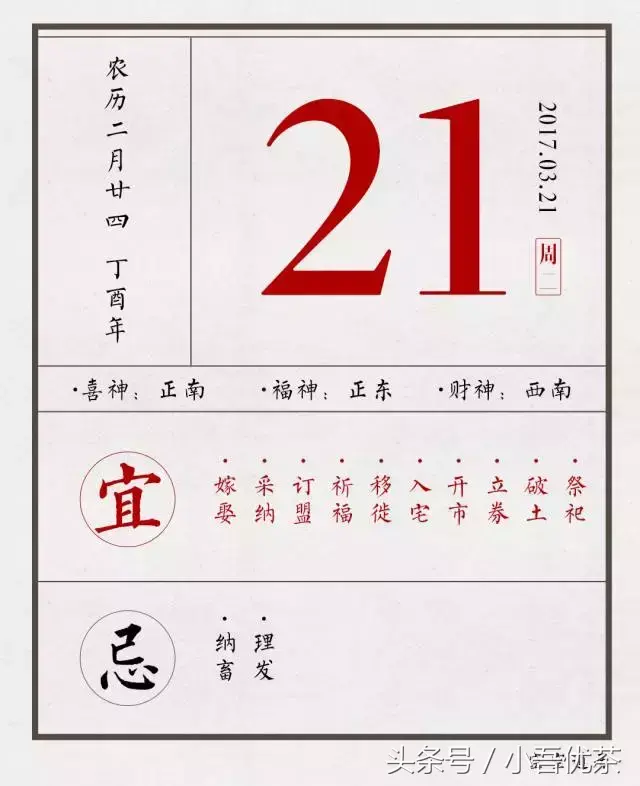 农历二月廿四 丁酉年
21
2017.03.21
周二
·喜神：正南 ·福神：正东 ·财神：西南
宜
·嫁娶
·采纳
·订盟
·祈福
·移徙
·入宅
·开市
·立券
·破土
·祭祀
忌
·纳畜
·理发
头条号 / 小吾优茶